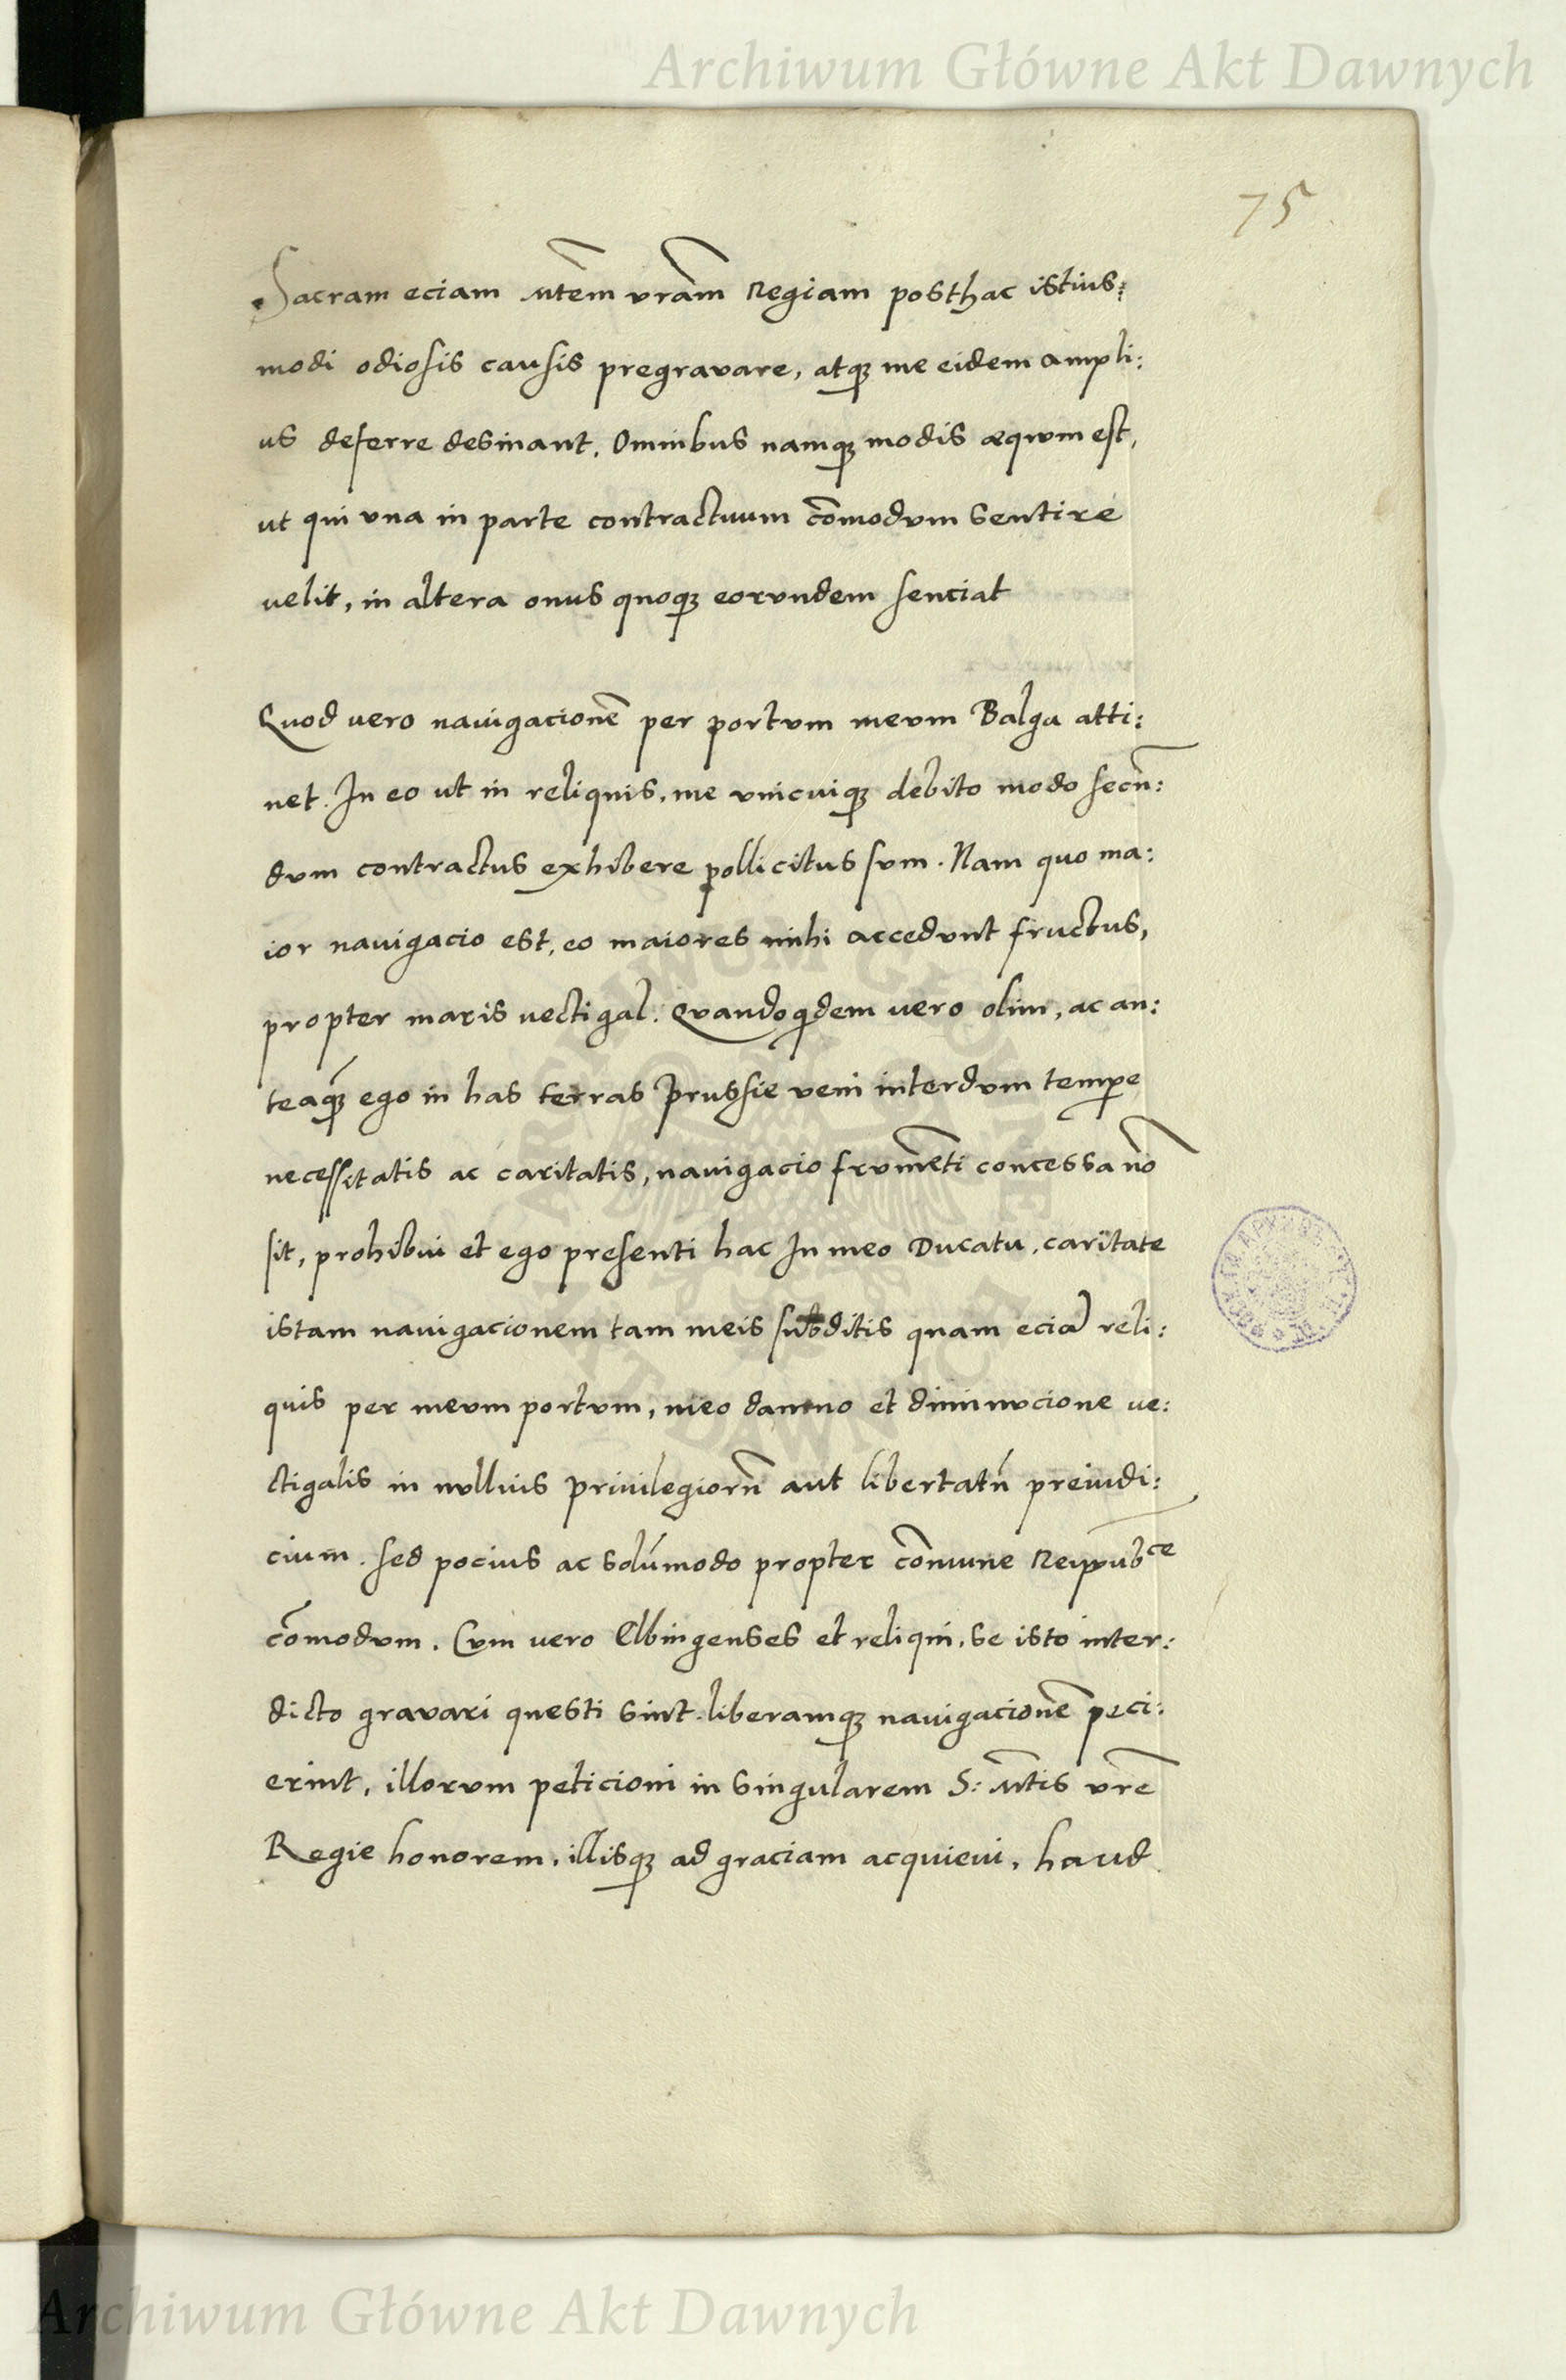 Archiwum Główne Akt Dawnych
75
Sacram eciam Mtem vram Regiam posthac istius:
modi odiosis causis pregravare, atq₃ me eidem ampli:
us deferre desinant. Omnibus namq₃ modis æqvm est,
ut qui vna in parte contractuum cōmodvm sentire
velit, in altera onus quoq₃ eorvndem senciat
Qvod vero nauigacionē per portvm mevm Balga atti:
net. In eo ut in reliquis, me vnicuiq₃ debito modo secū:
dvm contractus exhibere pollicitus svm. Nam quo ma:
ior nauigacio est, eo maiores mihi accedvnt fructus,
propter maris vectigal. Qvandoqidem vero olim, ac an:
teaq₃ ego in has terras Prussie veni interdvm tempe
necessitatis ac caritatis, nauigacio frvmēti concessa nō
sit, prohibui et ego presenti hac In meo Ducatu, caritate
istam nauigacionem tam meis subditis quam eciā reli:
quis per mevm portvm, meo damno et diminvcione ve:
ctigalis in nvllius priuilegiorū aut libertatū preiudi:
cium. sed pocius ac solūmodo propter cōmune Reipubce
cōmodvm. Cvm vero Elbingenses et reliqui, se isto inter:
dicto gravari questi sint. liberamq₃ nauigacionē peci:
erint, illorvm peticioni in singularem S: Mtis vre
Regie honorem, illisq₃ ad graciam acquieui, havd
Archiwum Główne Akt Dawnych